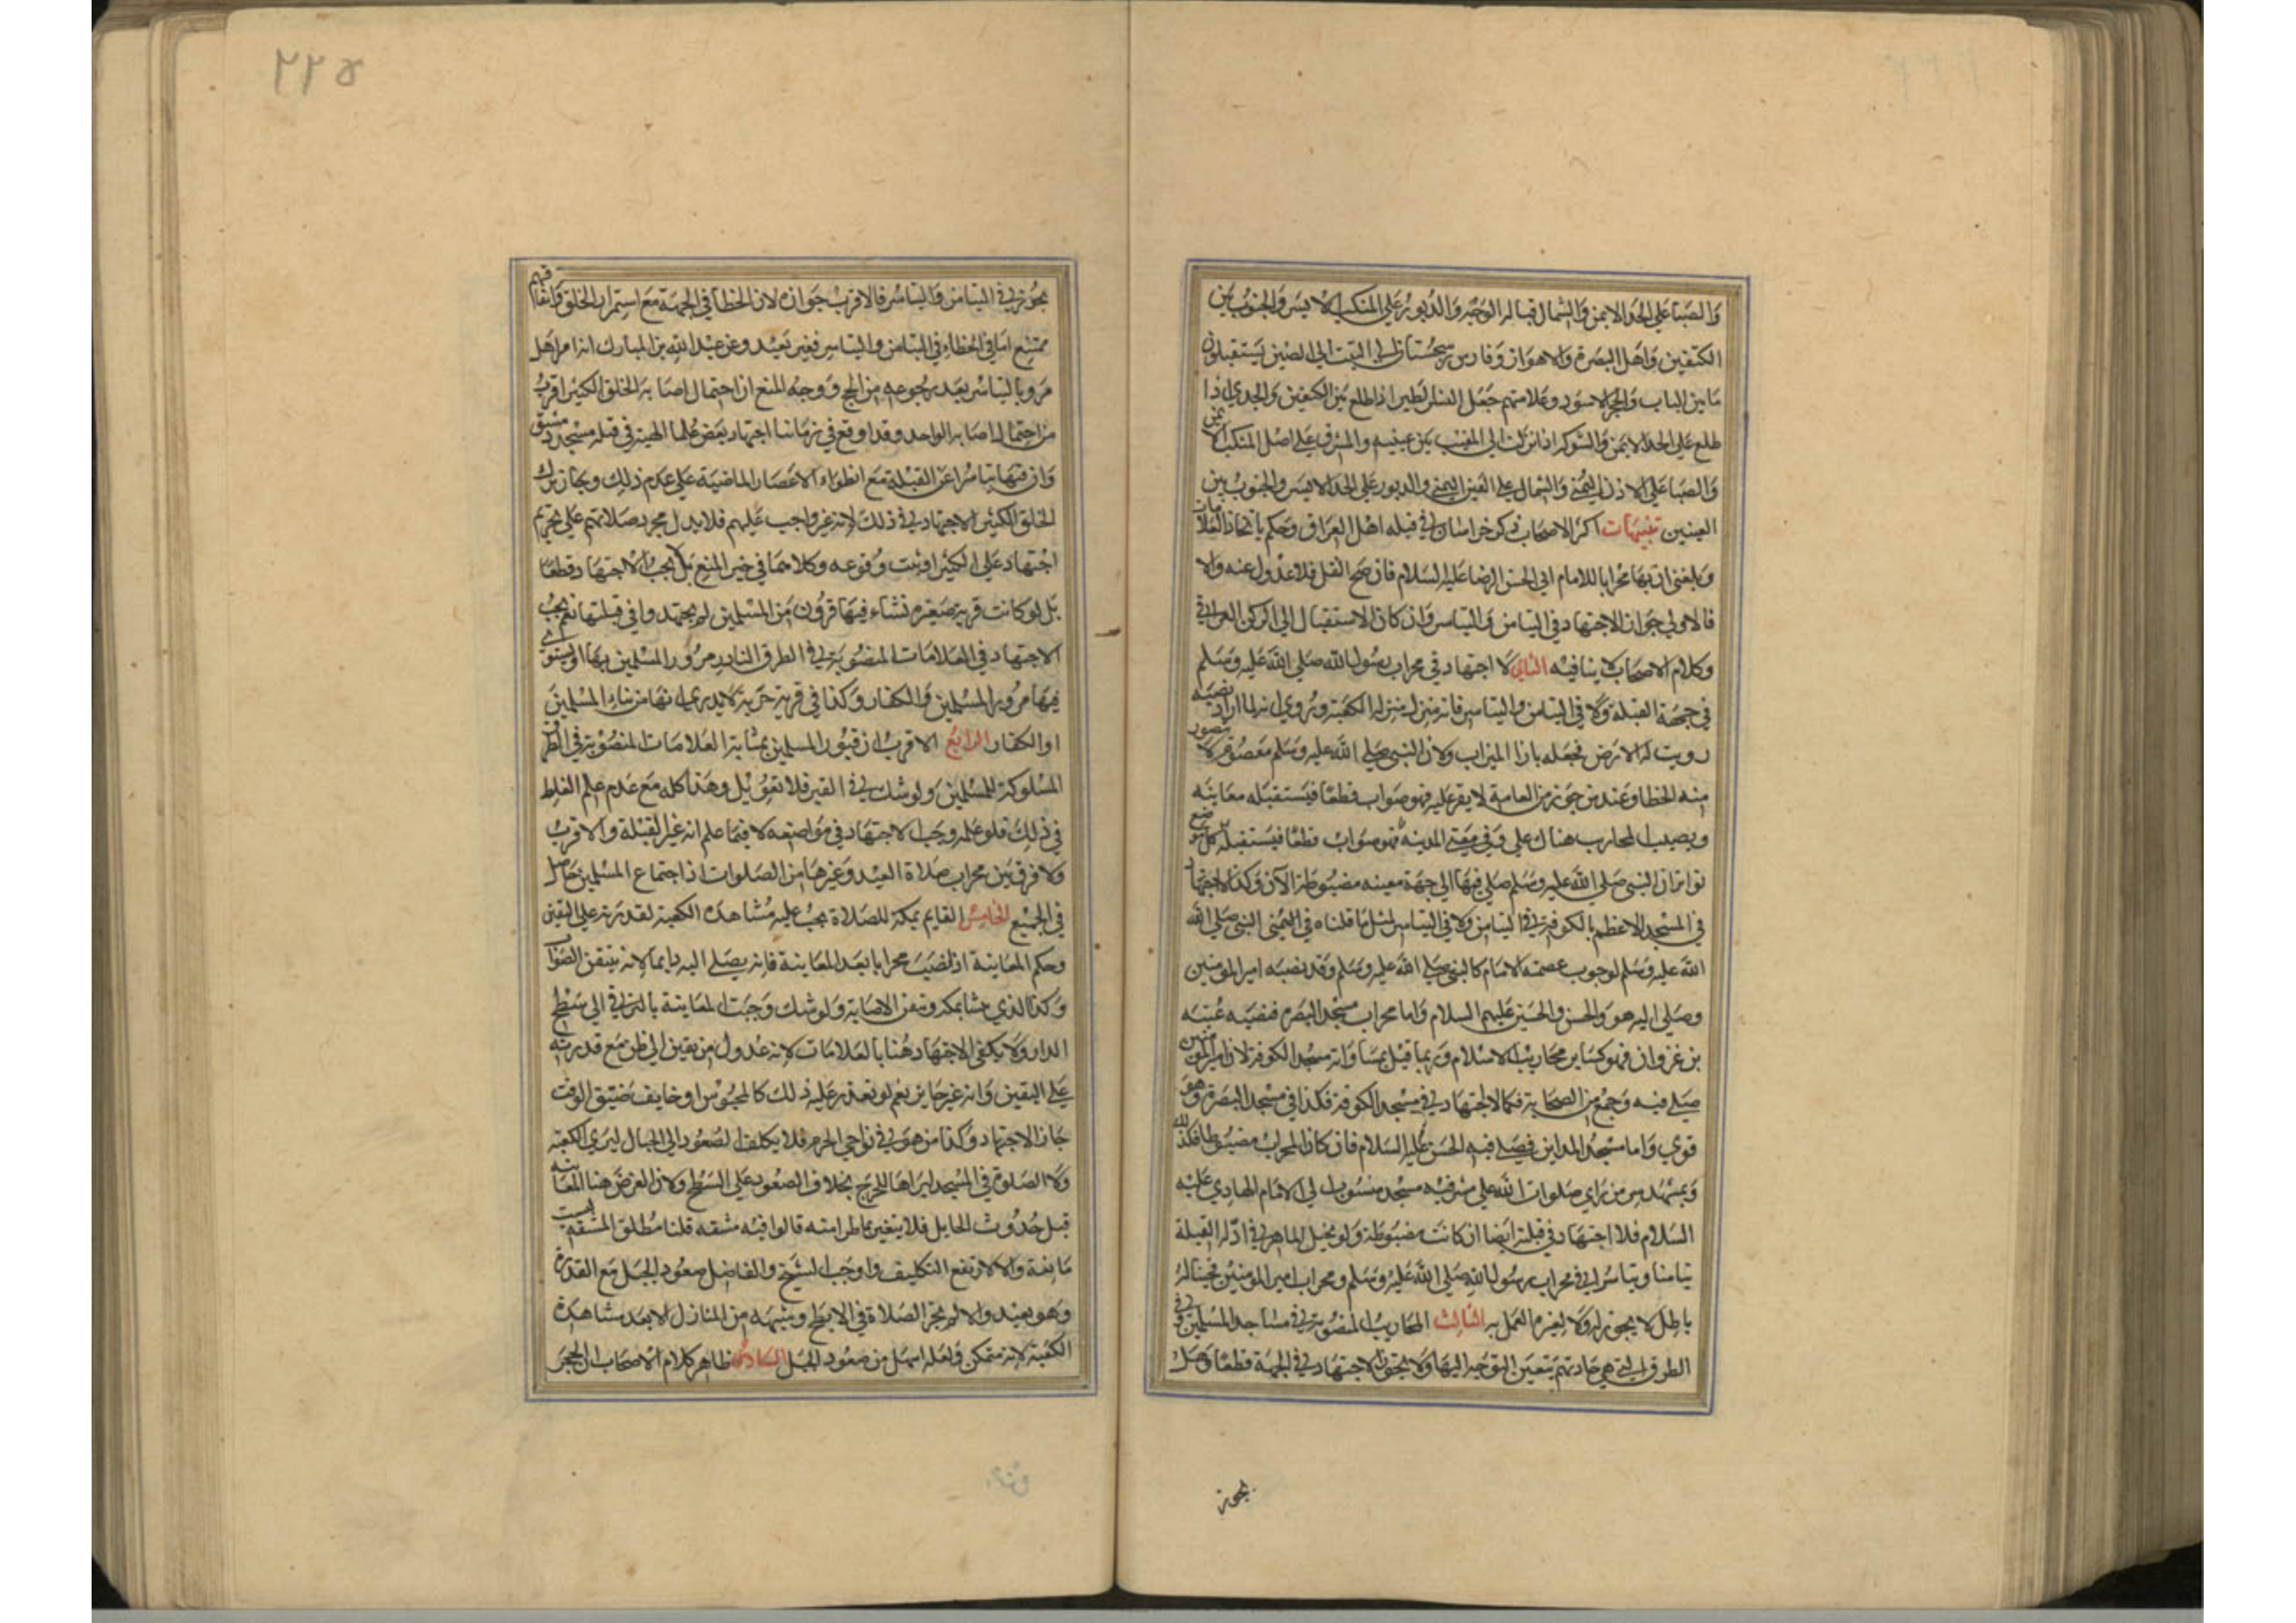 والصبا على الخد الايمن والشمال قبالة الوجه والدبور على المنكب الايسر والجنوب بين
الكتفين واهل البصرة والاهواز وفارس وسجستان الى التبت الى الصين يستقبلون
ما بين الباب والحجر الاسود وعلامتهم جعل النسر الطاير اذا طلع بين الكتفين والجدي اذا
طلع على الخد الايمن والشولة اذا نزلت الى المغيب بين عينيه والمشرق على اصل المنكب الايمن
والصبا على الاذن اليمنى والشمال على العين اليمنى والدبور على الخد الايسر والجنوب بين
العينين تنبيهات اكثر الاصحاب ذكر خراسان في قبلة اهل العراق وحكم باتحاد العلامات
وبلغني ان بها محرابا للامام ابي الحسن الرضا عليه السلام فان صح النقل فلا عدول عنه والا
فالاولى جواز الاجتهاد في التيامن والتياسر وان كان الاستقبال الى الركن العراقي
وكلام الاصحاب لا ينافيه الثاني لا اجتهاد في محراب رسول الله صلى الله عليه وسلم
في جهة القبلة ولا في التيامن والتياسر فانه منزل منزلة الكعبة وروي انه لما اراد نصبه
زويت له الارض فجعله بازا الميزاب ولان النبي صلى الله عليه وسلم معصوم لا يتصور
منه الخطا وعند من جوزه من العامة لا يقر عليه فهو صواب قطعا فيستقبله معاينة
وبصيب المحارب هناك على وفي بقية المدينة فهو صواب قطعا فيستقبله كل موضع
تواتر ان النبي صلى الله عليه وسلم صلى فيها الى جهة معينة مضبوطة الآن وكذا لا اجتهاد
في المسجد الاعظم بالكوفة في التيامن ولا في التياسر لمثل ما قلناه في النبي صلى الله
الله عليه وسلم لوجوب عصمة الامام كالنبي صلى الله عليه وسلم وقد نصبه امير المومنين
وصلى اليه هو والحسن والحسين عليهم السلام واما محراب مسجد البصرة فنصبه عتبة
بن غزوان فهو كساير محاريب الاسلام وربما قيل بمساواته مسجد الكوفة لان امير المومنين
صلى فيه وجمع من الصحابة فكما لا اجتهاد في مسجد الكوفة فكذا في مسجد البصرة وهو
قوي واما مسجد المداين فصلى فيه الحسن عليه السلام فان كان المحراب مضبوطا فكذلك
وبمشهد سر من راي صلوات الله على مشرفيه مسجد منسوب الى الامام الهادي عليه
السلام فلا اجتهاد في قبلته ايضا ان كانت مضبوطة ولو تخيل الماهر في ادلة القبلة
تيامنا وتياسرا في محراب رسول الله صلى الله عليه وسلم ومحراب امير المومنين فخياله
باطل لا يجوز له ولا لغيره العمل به الثالث المحاريب المنصوبة في مساجد المسلمين وفي
الطرق التي هي جادتهم يتعين التوجه اليها ولا يجوز الاجتهاد في الجهة قطعا وهل
يجوز
٢٢٥
يجوز في التيامن والتياسر فالاقرب جوازه لان الخطا في الجهة مع استمرار الخلق واتفاقهم
ممتنع اما في الخطاء في التيامن والتياسر فغير بعيد وعن عبد الله بن المبارك انه امر اهل
مرو بالتياسر بعد رجوعه من الحج ووجه المنع ان احتمال اصابة الخلق الكثير اقرب
من احتمال اصابة الواحد وقد وقع في زماننا اجتهاد بعض علما الهيئة في قبلة مسجد دمشق
وان فيها تياسرا عن القبلة مع انطواء الاعصار الماضية على عدم ذلك وجاز ترك
الخلق الكثير الاجتهاد في ذلك لانه غير واجب عليهم فلا يدل مجرد صلاتهم على تحريم
اجتهاد على الكثير اوثبت وقوعه وكلاهما في حيز المنع بل لا يجب الاجتهاد قطعا
بل لو كانت قرية صغيرة نشاء فيها قرون من المسلمين لم يجتهدوا في قبلتها نعم يجب
الاجتهاد في العلامات المنصوبة في الطرق النادر مرور المسلمين بها او يستوي
فيها مرور المسلمين والكفار وكذا في قرية خربة لا يدري انها من بناء المسلمين
او الكفار الرابع الاقرب ان قبور المسلمين بمثابة العلامات المنصوبة في الطرق
المسلوكة للمسلمين ولو شك في القبر فلا تعويل وهذا كله مع عدم علم الغلط
في ذلك فلو علم وجب الاجتهاد في مواضعه لا فيما علم انه غير القبلة والاقرب
ولا فرق بين محراب صلاة العيد وغيرها من الصلوات اذ اجتماع المسلمين حاصل
في الجميع الخامس القايم بمكة للصلاة يجب عليه مشاهدة الكعبة لقدرته على اليقين
وحكم المعاينة اذ نصب محرابا بعد المعاينة فانه يصلي اليه دايما لانه يتيقن الصواب
وكذا الذي نشا بمكة وتيقن الاصابة ولو شك وجبت المعاينة بالترقي الى سطح
الدار ولا يكفي الاجتهاد هنا بالعلامات لانه عدول من يقين الى ظن مع قدرته
على اليقين وانه غير جايز نعم لو تعذر عليه ذلك كالمحبوس او خايف ضيق الوقت
جاز الاجتهاد وكذا من هو في نواحي الحرم فلا يكلف الصعود الى الجبال ليري الكعبة
ولا الصلوة في المسجد ليراها للحرج بخلاف الصعود على السطح ولان الغرض هنا المعاينة
قبل حدوث الحايل فلا يتغير بما طرا منه قالوا فيه مشقة قلنا مطلق المشقة ليست
مانعة والا لارتفع التكليف واوجب الشيخ والفاضل صعود الجبل مع القدرة
وهو بعيد والا لم يجز الصلاة في الابطح وشبهه من المنازل الا بعد مشاهدة
الكعبة لانه متمكن ولعله اسهل من صعود الجبل السادس ظاهر كلام الاصحاب ان الحجر